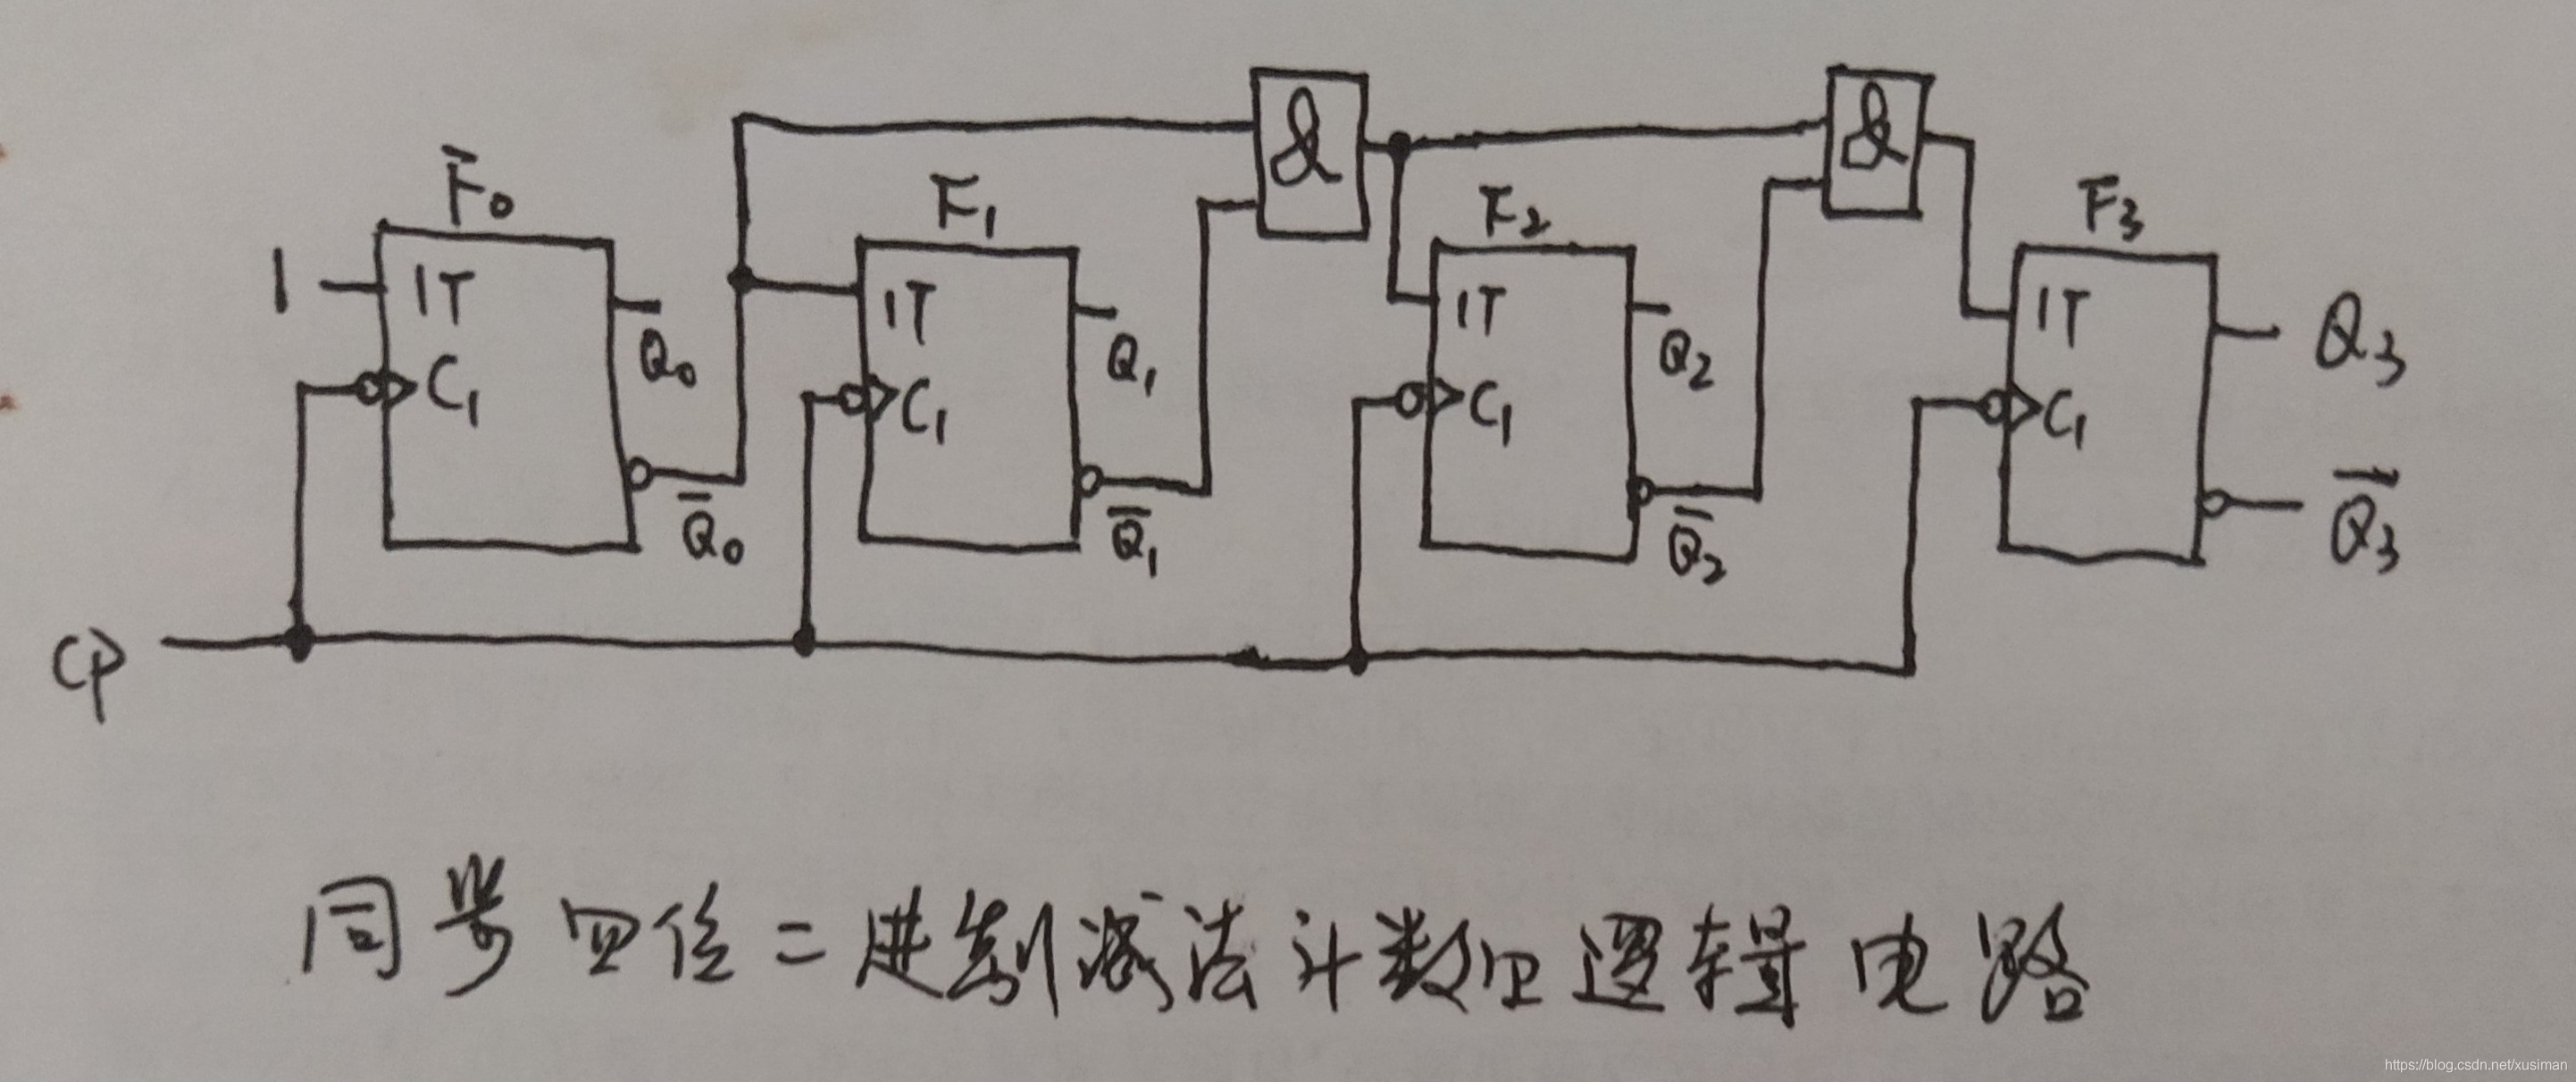 F₀ F₁ F₂ F₃
& &
1 1T C₁ Q₀ Q̅₀
1T C₁ Q₁ Q̅₁
1T C₁ Q₂ Q̅₂
1T C₁ Q₃ Q̅₃
CP
同步四位二进制减法计数四逻辑电路
https://blog.csdn.net/xusiman